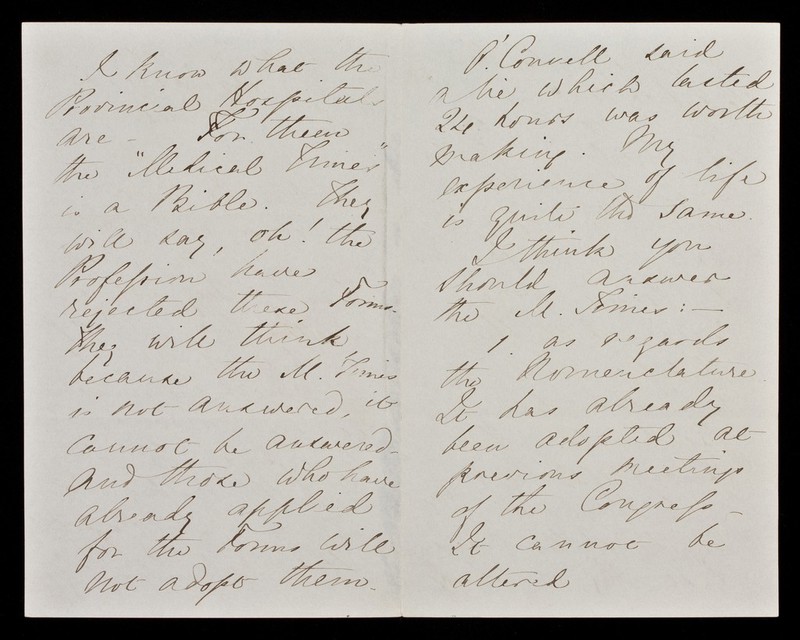 I know what the
Provincial Hospitals
are - For them
the "Medical Times"
is a Bible. They
will say, oh! the
Profession have
rejected these Forms.
they will think
because the M. Times
is not answered, it
cannot be answered -
And those who have
already applied
for the Forms will
not adopt them.
O'Connell said
a lie which lasted
24 hours was worth
making. My
experience of life
is quite the same.
I think you
should answer
the M. Times: -
1. as regards
the Nomenclature
It has already
been adopted at
previous meetings
of the Congress -
It cannot be
altered